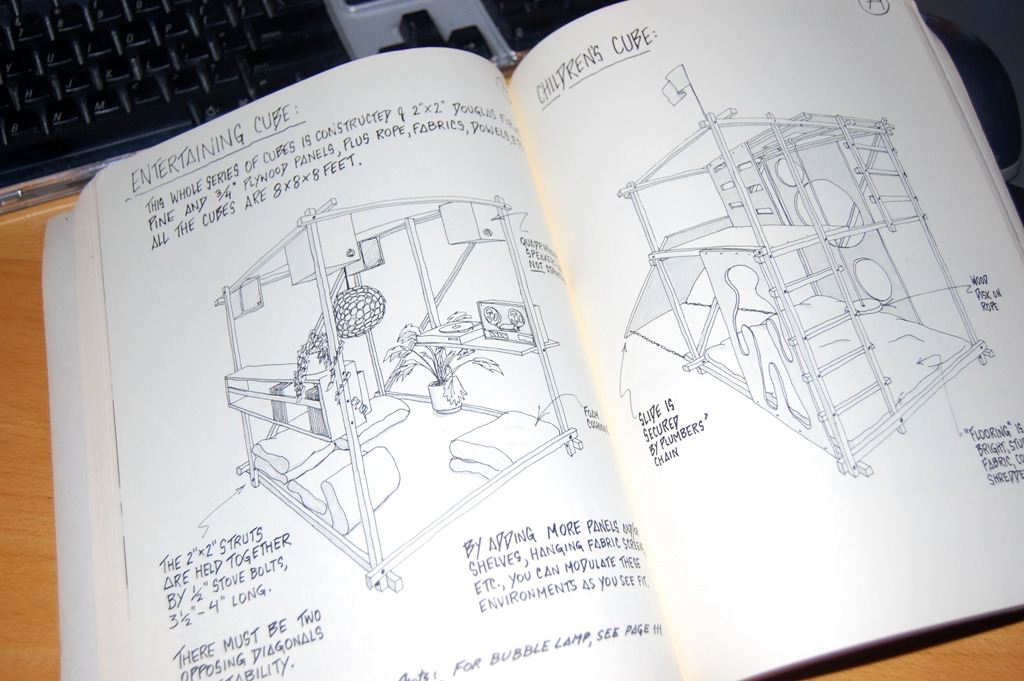 ENTERTAINING CUBE:
THIS WHOLE SERIES OF CUBES IS CONSTRUCTED of 2"x2" DOUGLAS
PINE AND 3/4" PLYWOOD PANELS, PLUS ROPE, FABRICS, DOWELS,
ALL THE CUBES ARE 8x8x8 FEET.
NOT
FOAM
THE 2"x2" STRUTS
ARE HELD TOGETHER
BY 1/2" STOVE BOLTS,
3 1/2"-4" LONG.
THERE MUST BE TWO
OPPOSING DIAGONALS
BY ADDING MORE PANELS AND/OR
SHELVES, HANGING FABRIC
ETC., YOU CAN MODULATE THESE
ENVIRONMENTS AS YOU SEE FIT.
FOR BUBBLE LAMP, SEE PAGE
CHILDREN'S CUBE:
WOOD
DISK ON
ROPE
SLIDE IS
SECURED
BY PLUMBERS'
CHAIN
"FLOORING" IS
BRIGHT,
FABRIC,